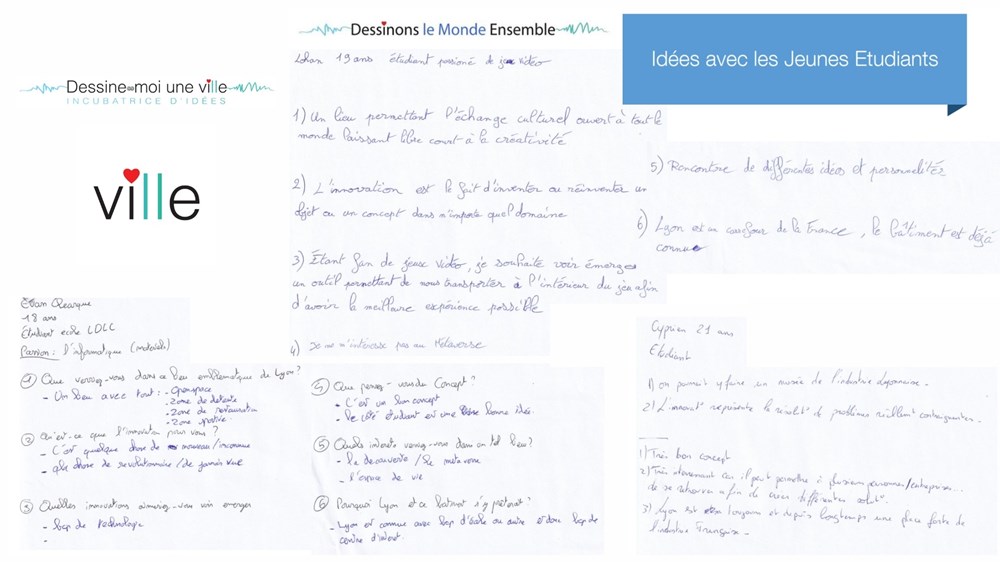 Dessine-moi une ville
INCUBATRICE D'IDÉES
ville
Dessinons le Monde Ensemble
Idées avec les Jeunes Etudiants
Lohan 19 ans étudiant passioné de jeux vidéo
1) Un lieu permettant l'échange culturel ouvert à tout le
monde laissant libre court à la créativité
2) L'innovation est le fait d'inventer ou réinventer un
objet ou un concept dans n'importe quel domaine
3) Étant fan de jeux vidéo, je souhaite voir émerger
un outil permettant de nous transporter à l'intérieur du jeu afin
d'avoir la meilleure expérience possible
4) Je ne m'intéresse pas au Métaverse
5) Rencontre de différentes idées et personnalités
6) Lyon est un carrefour de la France, le bâtiment est déjà
connu
Evan
18 ans
Étudiant ecole LDLC
Passion : l'informatique (matériels)
1 Que verriez-vous dans ce lieu emblématique de Lyon ?
- Un lieu avec tout : - Openspace
- Zone de détente
- Zone de restauration
- Zone sportive
2 Qu'est-ce que l'innovation pour vous ?
- C'est quelque chose de nouveau/inconnue
- chose de revolutionnaire / de jamais vue
3 Quelles innovations aimeriez-vous voir emerger
- bcp de technologie
-
5 Que pensez-vous du Concept ?
- C'est un bon concept
- Le côté étudiant est une bonne idée.
5 Quels interets verriez-vous dans un tel lieu ?
- la decouverte / le metaverse
- l'
6 Pourquoi Lyon et ce batiment s'y preterait ?
- Lyon est connue avec bcp d'école ou autre et donc bcp de
centre d'interet
Cyprien 21 ans
Etudiant
1) on pourrait y faire un musée de l'industrie lyonnaise.
2) L'innovat° représente la résolut° de problèmes réellement contraignants.
1) Très bon concept
2) Très interessant car il peut permettre à plusieurs personnes/entreprises...
de se retrouver afin de créer différentes solut°.
3) Lyon est toujours et depuis longtemps une place forte de
l'industrie Française.